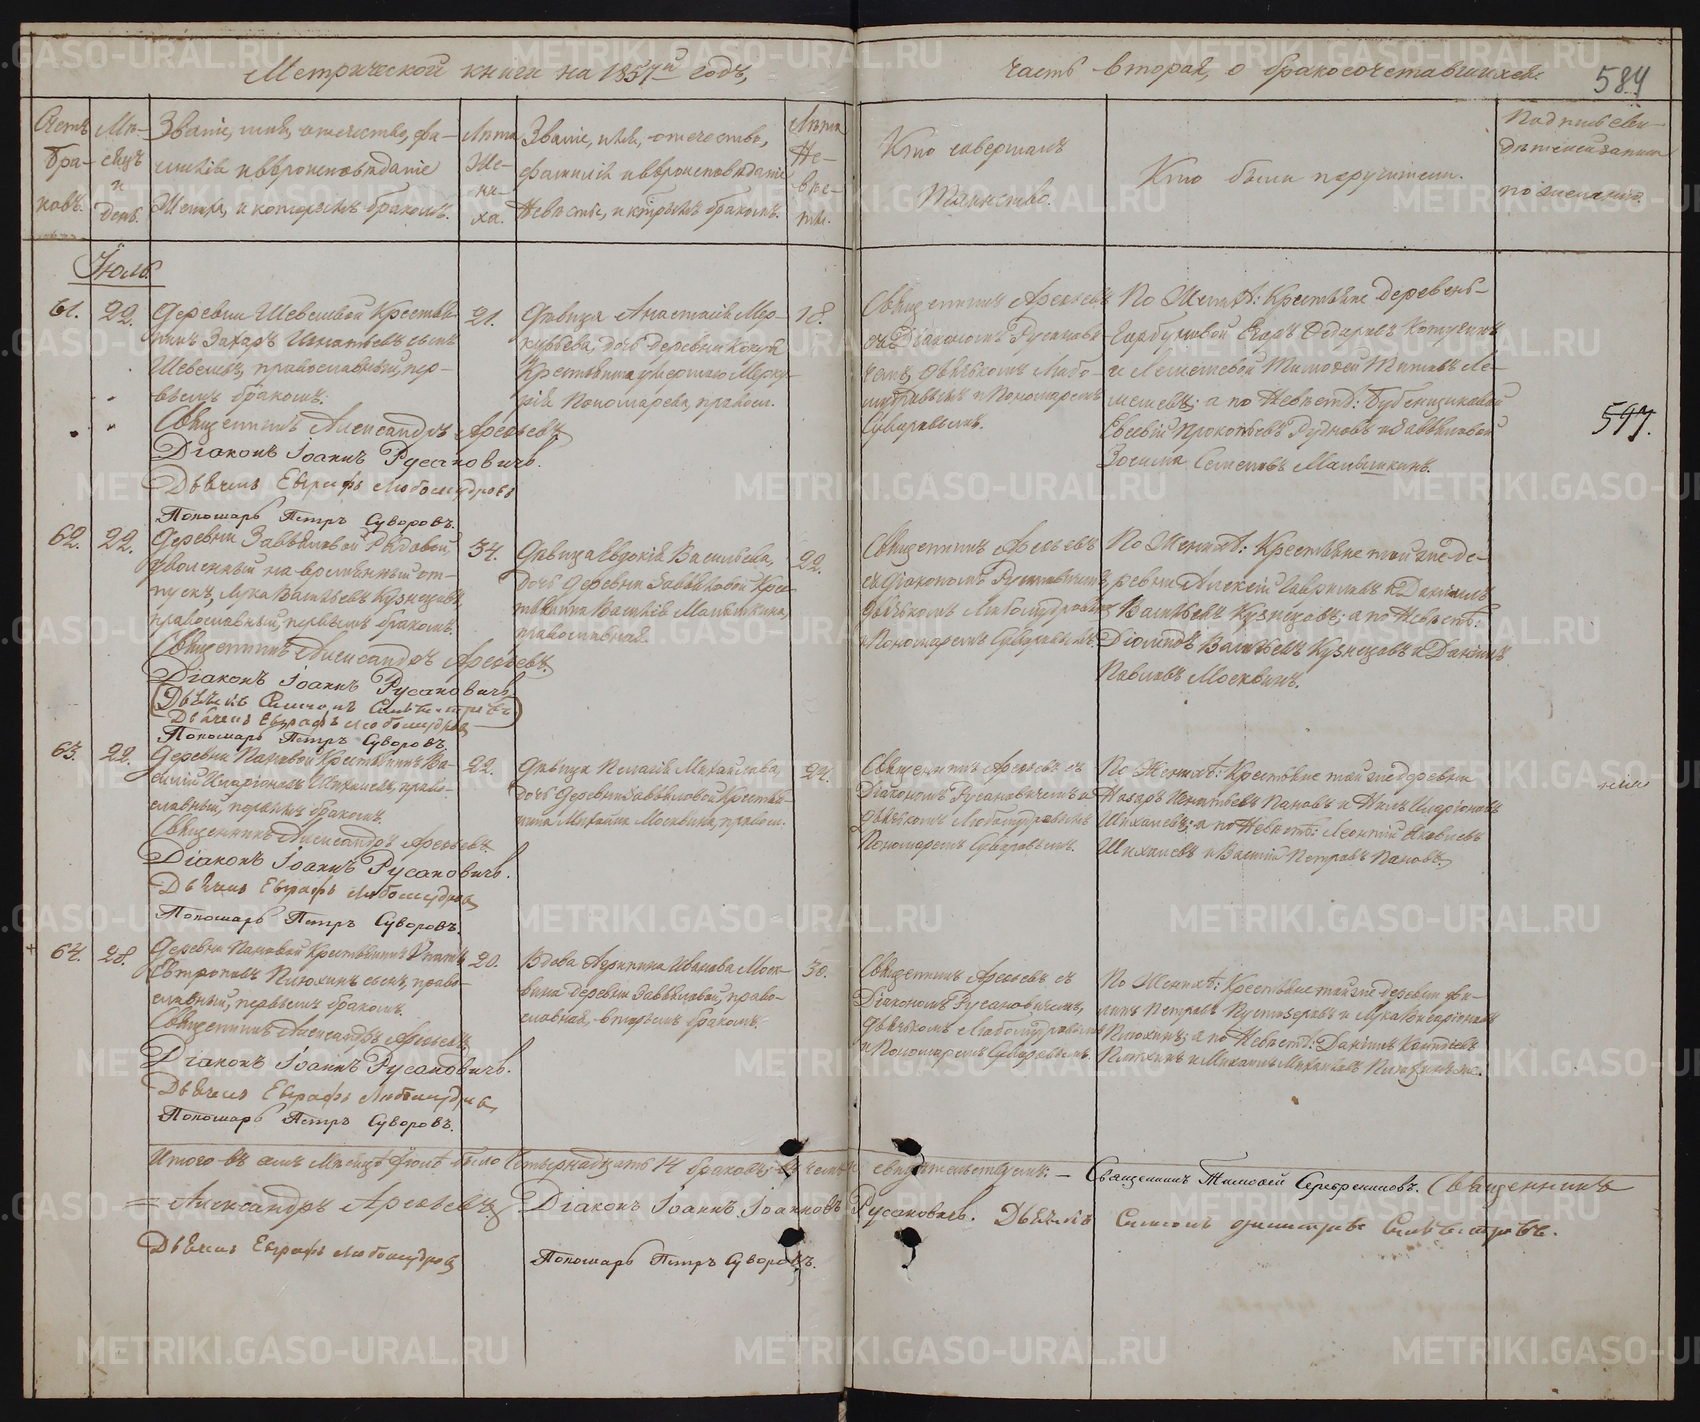 Метрической книги на 1857й годъ,
часть вторая, о бракосочетавшихся.
584
Счетъ браковъ.
Мѣсяцъ и день.
Званіе, имя, отечество, фамилія и вѣроисповѣданіе
Жениха, и которымъ бракомъ.
Лѣта Жениха.
Званіе, имя, отечество,
фамилія и вѣроисповѣданіе
Невѣсты, и которымъ бракомъ.
Лѣта Невѣсты.
Кто совершалъ
Таинство.
Кто были поручители.
Подпись свидѣтелей записи
по желанію.
Іюль.
61.
22.
Деревни Шевелевой Крестья-
нинъ Захаръ Игнатьевъ сынъ
Шевелевъ, православный, пер-
вымъ бракомъ.
Священникъ Александръ
Діаконъ Іоаннъ Русановичъ.
Дьячекъ Евграфъ Любомудровъ
Пономарь Петръ Суворовъ.
21.
Дѣвица Анастасія Мер-
курьева, дочь деревни
Крестьянина умершаго Мерку-
рія Пономарева, правосл.
18.
Священникъ
съ Діакономъ Русанови-
чемъ, Дьячкомъ Любо-
мудровымъ и Пономаремъ
Суворовымъ.
По Женихѣ: Крестьяне деревень-
Горбуновой Егоръ Федоровъ
и Лемешевой Тимофей Титовъ Ле-
мешевъ; а по Невѣстѣ:
Евсевій Прокопьевъ Рудновъ и Завьяловой
Зосима Семеновъ Малышкинъ.
597.
62.
22.
Деревни Завьяловой Рядовой,
уволенный на временный от-
пускъ, Лука Васильевъ Кузнецовъ,
православный, первымъ бракомъ.
Священникъ Александръ
Діаконъ Іоаннъ Русановичъ
Дьячекъ Симеонъ
Дьячекъ Евграфъ Любомудровъ
Пономарь Петръ Суворовъ.
34.
Дѣвица Евдокія Васильева,
дочь деревни Завьяловой Кре-
стьянина Василія Малышкина,
православная.
22.
Священникъ
съ Діакономъ Русановичемъ,
Дьячкомъ Любомудровымъ
и Пономаремъ Суворовымъ.
По Женихѣ: Крестьяне той же де-
ревни Алексій Гавриловъ и Даніилъ
Васильевъ Кузнецовъ; а по Невѣстѣ:
Діомидъ Васильевъ Кузнецовъ и Даніилъ
Павловъ Москвинъ.
63.
22.
Деревни Пановой Крестьянинъ Ва-
силій Иларіоновъ Шихалевъ, право-
славный, первымъ бракомъ.
Священникъ Александръ
Діаконъ Іоаннъ Русановичъ.
Дьячекъ Евграфъ Любомудровъ
Пономарь Петръ Суворовъ.
22.
Дѣвица Пелагія Михайлова,
дочь деревни Завьяловой Крестья-
нина Михайла Москвина, правосл.
24.
Священникъ съ
Діакономъ Русановичемъ и
Дьячкомъ Любомудровымъ
Пономаремъ Суворовымъ.
По Женихѣ: Крестьяне той же деревни
Назаръ Игнатьевъ Пановъ и Нилъ Иларіоновъ
Шихалевъ; а по Невѣстѣ: Леонтій Яковлевъ
Шихалевъ и Василій Петровъ Пановъ.
64.
28.
Деревни Пановой Крестьянинъ
Евтроповъ Пилюхинъ сынъ, право-
славный, первымъ бракомъ.
Священникъ Александръ
Діаконъ Іоаннъ Русановичъ.
Дьячекъ Евграфъ Любомудровъ
Пономарь Петръ Суворовъ.
20.
Вдова Агрипина Иванова Моск-
вина деревни Завьяловой, право-
славная, вторымъ бракомъ.
30.
Священникъ съ
Діакономъ Русановичемъ,
Дьячкомъ Любомудровымъ
и Пономаремъ Суворовымъ.
По Женихѣ: Крестьяне той же деревни Фи-
липъ Петровъ Пустозеровъ и Лука
Пилюхинъ; а по Невѣстѣ: Даніилъ
Пилюхинъ и Михаилъ Михайловъ
Итого въ семъ Мѣсяцѣ Іюлѣ было Четырнадцать 14 браковъ; въ чемъ и свидѣтельствуемъ: – Священникъ Тимоѳей Серебренниковъ. Священникъ
Александръ Діаконъ Іоаннъ Іоанновъ Русановичъ. Дьячекъ Симеонъ Димитріевъ
Дьячекъ Евграфъ Любомудровъ
Пономарь Петръ Суворовъ.
METRIKI.GASO-URAL.RU